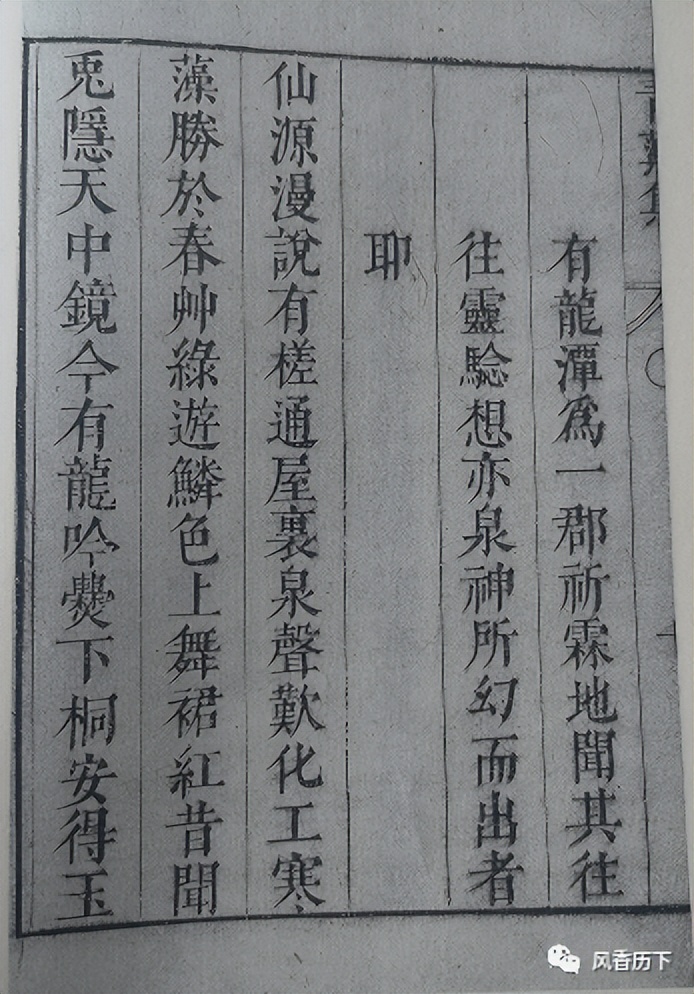 有龍潭爲一郡祈霖地聞其往
往靈驗想亦泉神所幻而出者
耶
仙源漫說有槎通屋裏泉聲歎化工寒
藻勝於春艸綠遊鱗色上舞裙紅昔聞
兎隱天中鏡今有龍吟爨下桐安得玉
风香历下